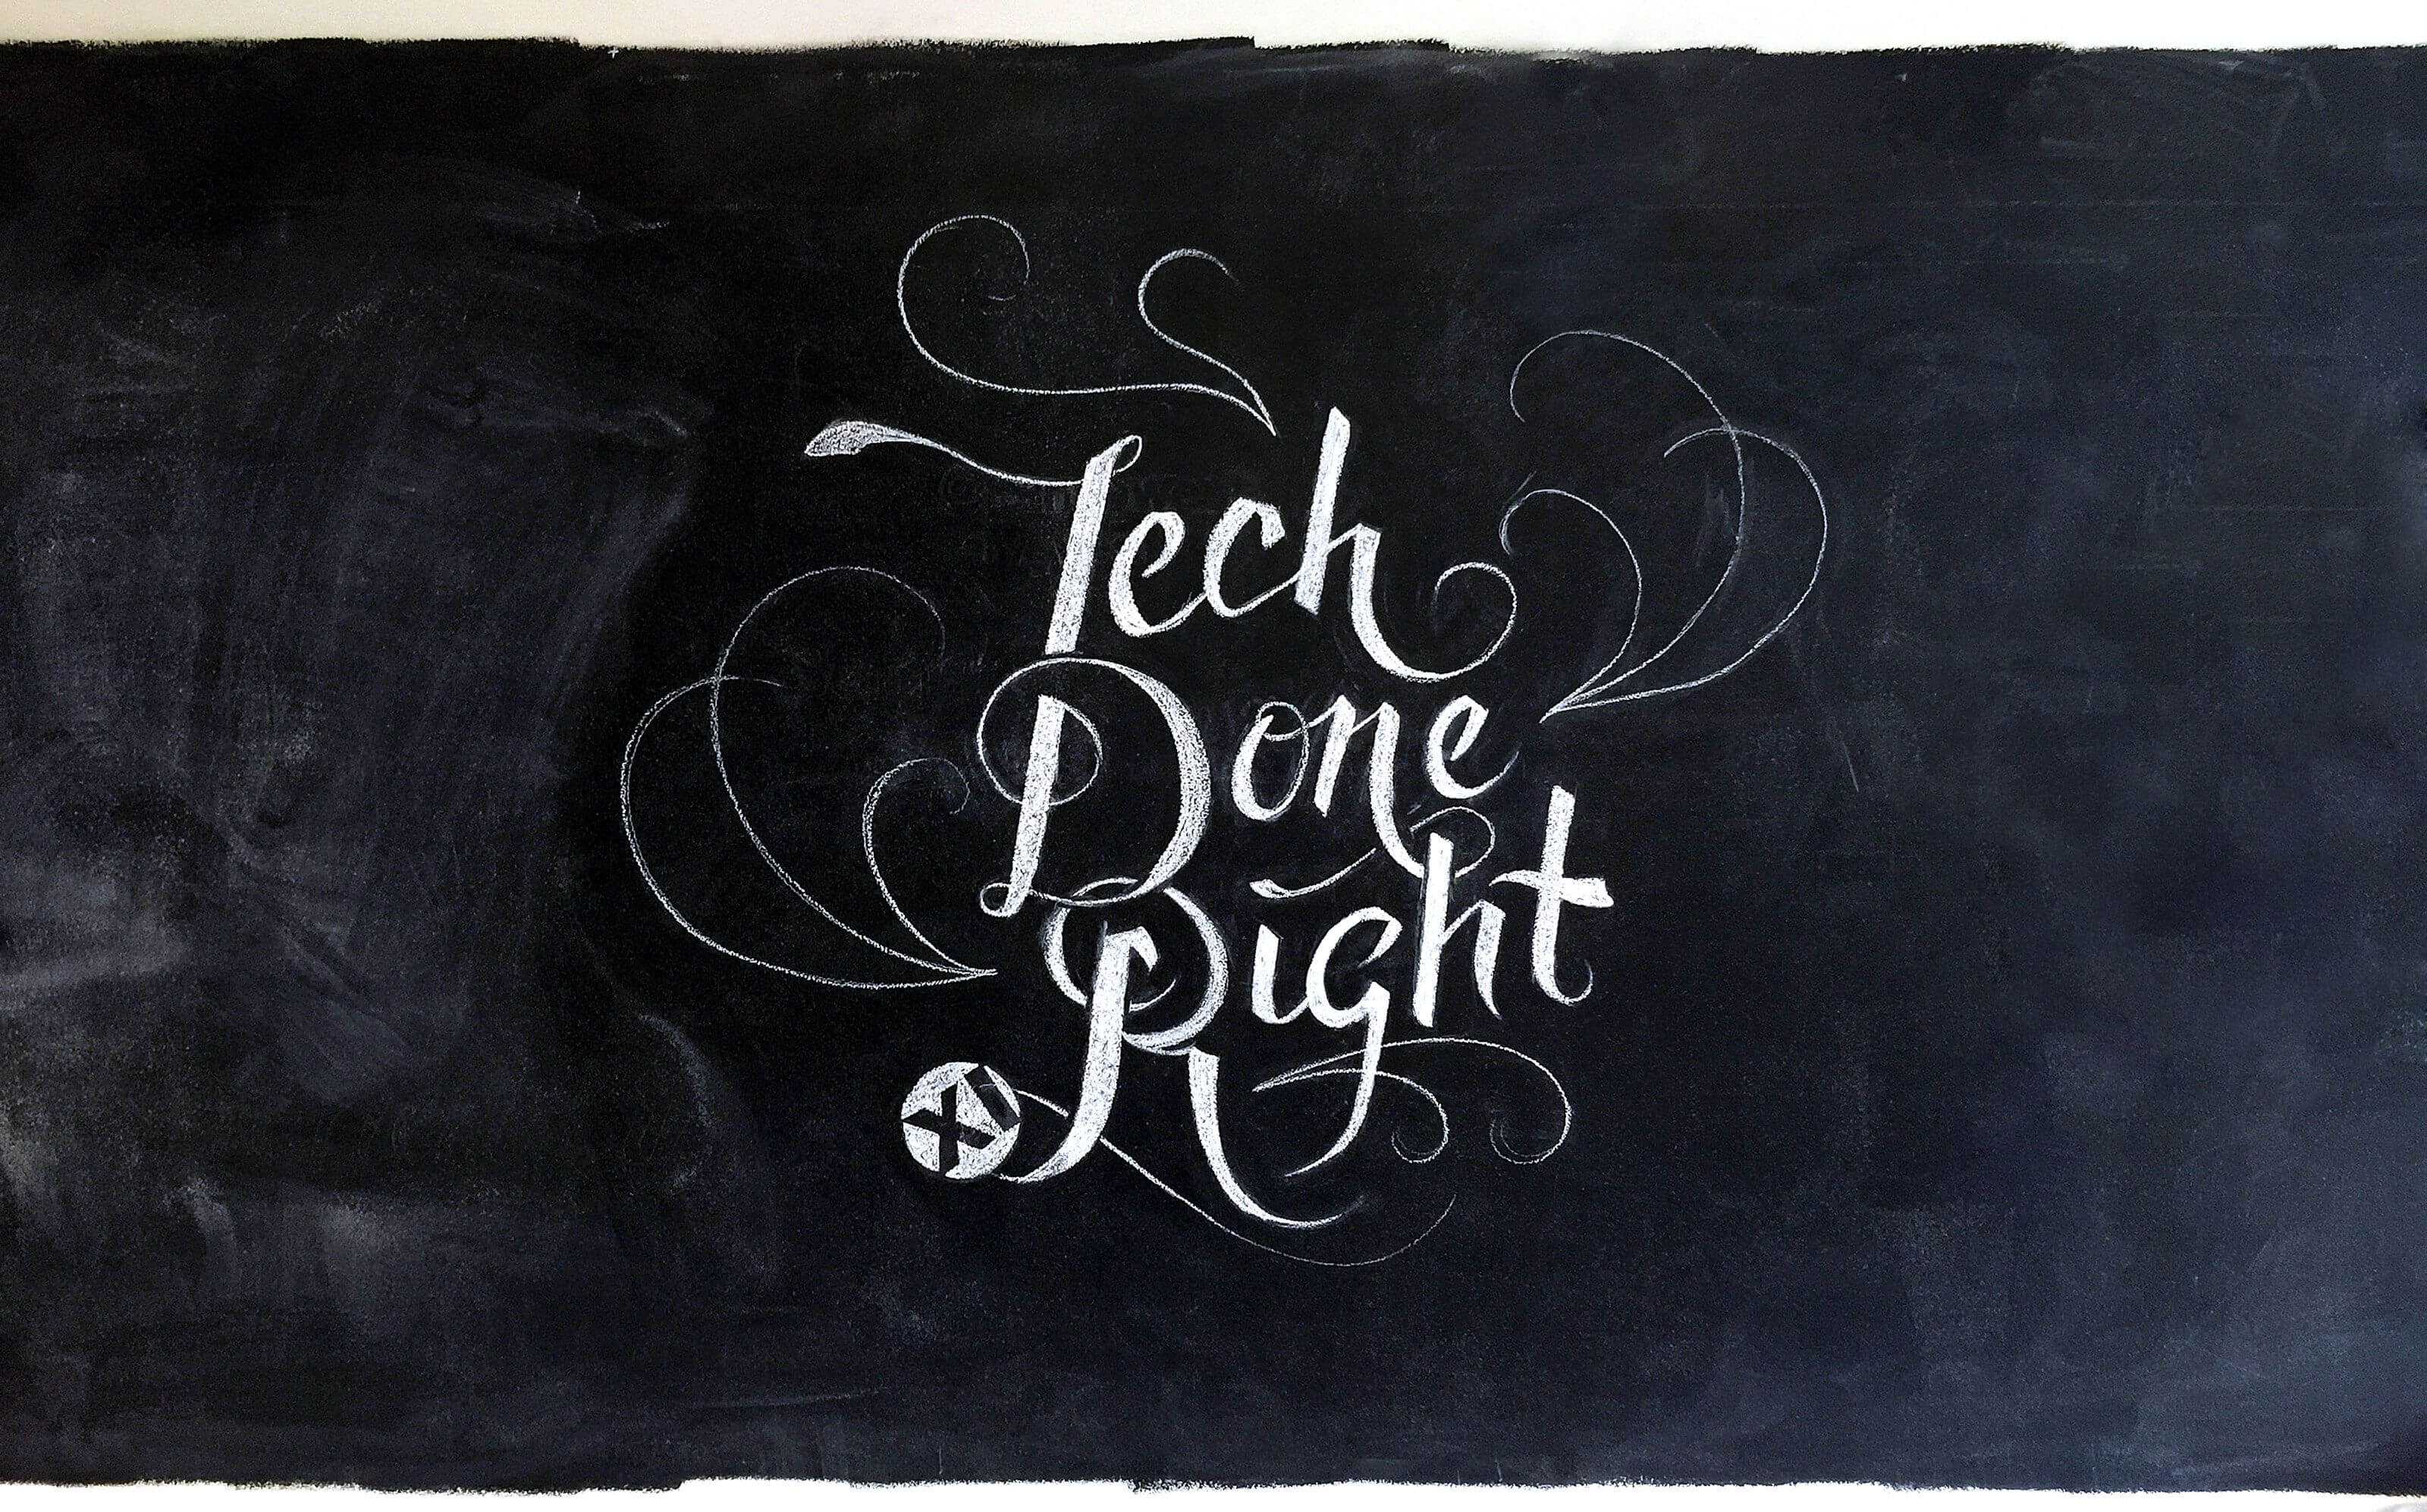 Tech
Done
Right
XII